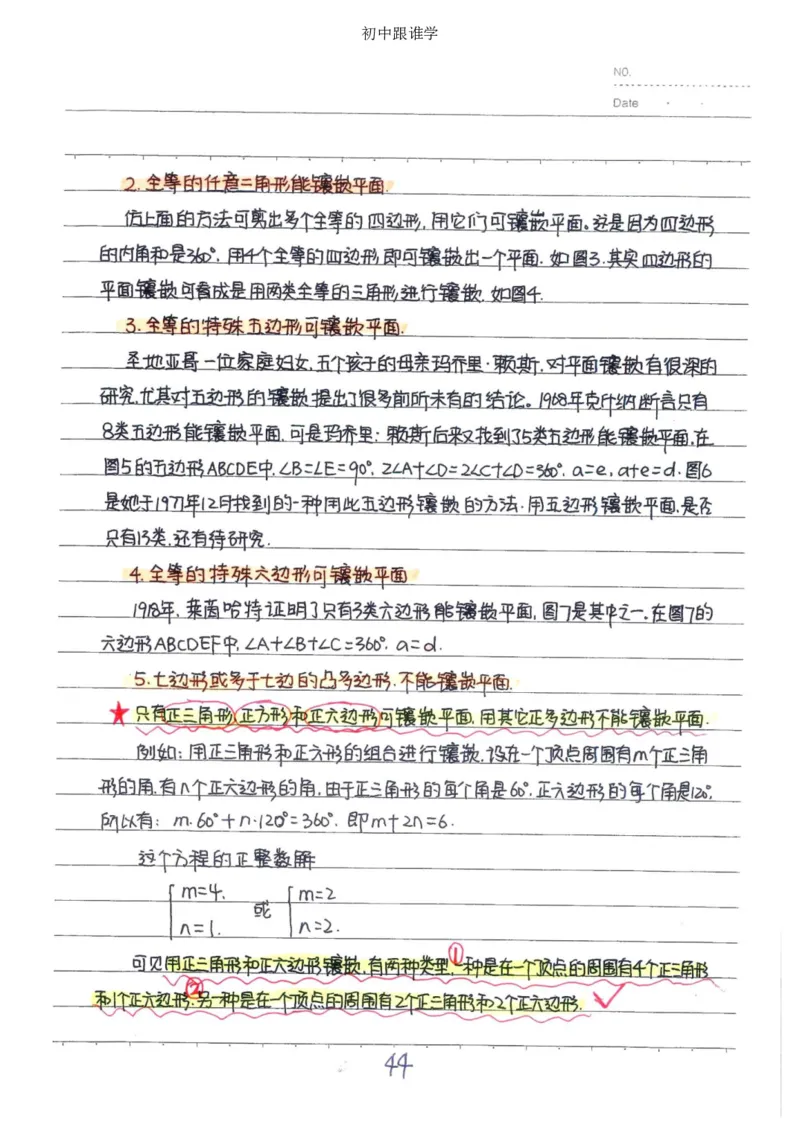 初中跟谁学
NO.
Date
2.全等的任意二角形能镶嵌平面.
仿上面的方法可剪出多个全等的四边形,用它们可镶嵌平面。这是因为四边形
的内角和是360°.用4个全等的四边形即可镶嵌出一个平面.如图3.其实四边形的
平面镶嵌可看成是用两类全等的三角形进行镶嵌.如图4.
3.全等的特殊五边形可镶嵌平面.
圣地亚哥一位家庭妇女,五个孩子的母亲玛乔里·赖斯,对平面镶嵌有很深的
研究,尤其对五边形的镶嵌提出了很多前所未有的结论。1968年克什纳断言只有
8类五边形能镶嵌平面,可是玛乔里·赖斯后来又找到了5类五边形能镶嵌平面,在
图5的五边形ABCDE中,∠B=∠E=90°,2∠A+∠D=2∠C+∠D=360°,a=e,a+e=d.图6
是她于1977年12月找到的一种用此五边形镶嵌的方法.用五边形镶嵌平面,是否
只有13类,还有待研究.
4.全等的特殊六边形可镶嵌平面
1918年,莱茵哈特证明了只有3类六边形能镶嵌平面,图7是其中之一.在图7的
六边形ABCDEF中,∠A+∠B+∠C=360°,a=d.
5.七边形或多于七边的凸多边形,不能镶嵌平面.
★只有正三角形、正方形和正六边形可镶嵌平面,用其它正多边形不能镶嵌平面.
例如:用正三角形和正六形的组合进行镶嵌,设在一个顶点周围有m个正三角
形的角,有n个正六边形的角,由于正三角形的每个角是60°,正六边形的每个角是120°,
所以有:m·60°+n·120°=360°.即m+2n=6.
这个方程的正整数解
{m=4. 或 {m=2
n=1. n=2.
可见用正三角形和正六边形镶嵌,有两种类型,①一种是在一个顶点的周围有4个正三角形
和1个正六边形,②另一种是在一个顶点的周围有2个正三角形和2个正六边形.
44